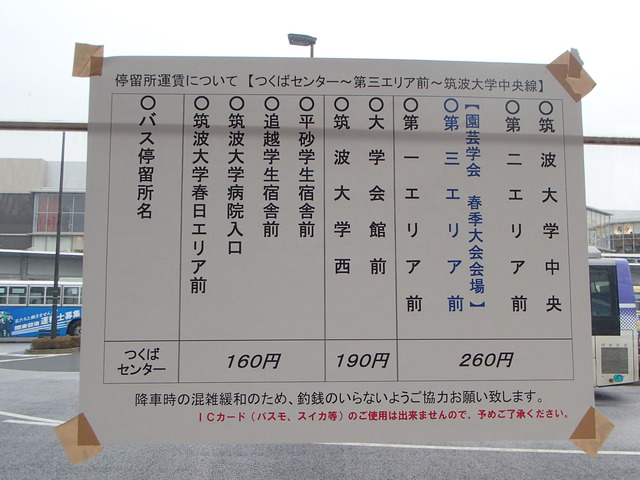 停留所運賃について 【つくばセンター～第三エリア前～筑波大学中央線】
○バス停留所名
○筑波大学春日エリア前
○筑波大学病院入口
○追越学生宿舎前
○平砂学生宿舎前
○筑波大学西
○大学会館前
○第一エリア前
○第三エリア前
【園芸学会 春季大会会場】
○第二エリア前
○筑波大学中央
つくば
センター
160円
190円
260円
降車時の混雑緩和のため、釣銭のいらないようご協力お願い致します。
ＩＣカード（パスモ、スイカ等）のご使用は出来ませんので、予めご了承ください。
運転士募集